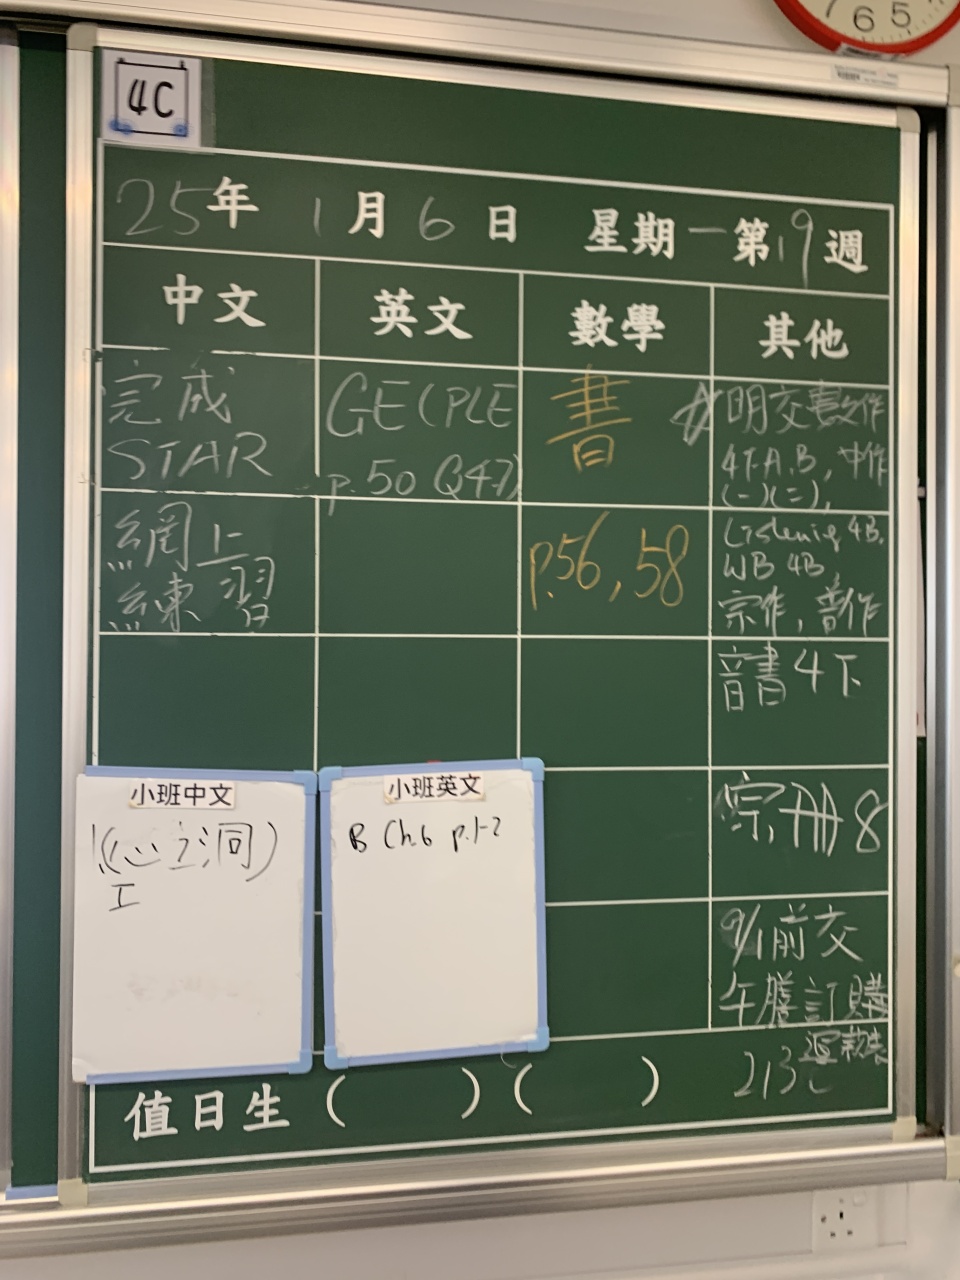 7 6 5
4C
25年 1月6日 星期一 第19週
中文 英文 數學 其他
完成
STAR
網上
練習
GE(PLE
p.50 Q47)
書
p.56, 58
明交數作
4下A.B, 中作
(一)(二),
Listening 4B,
WB 4B,
宗作, 普作
音書4下
宗冊8
9/1前交
午膳訂購
小班中文
心之洞)
工
小班英文
B Ch.6 p.1-2
值日生 ( ) ( )